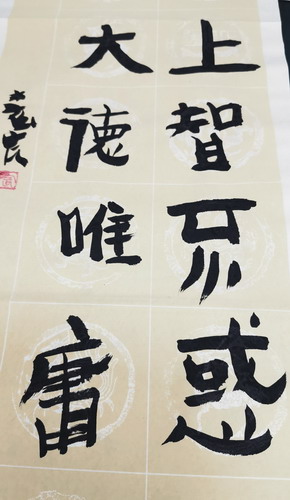 上智不惑
大德唯庸